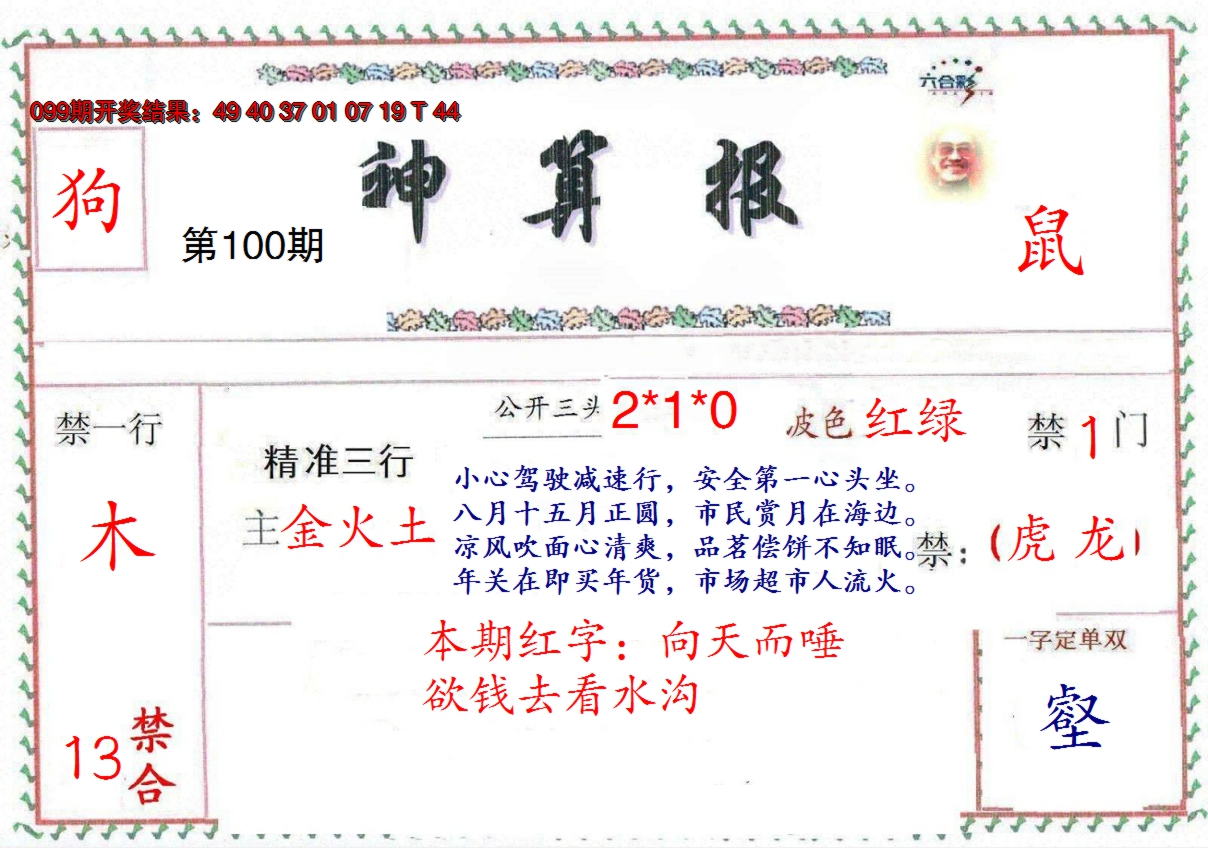 六合彩
099期开奖结果：49 40 37 01 07 19 T 44
神算报
狗
第100期
鼠
公开三头 2*1*0
波色 红绿
禁1门
禁一行
木
精准三行
主金火土
小心驾驶减速行，安全第一心头坐。
八月十五月正圆，市民赏月在海边。
凉风吹面心清爽，品茗偿饼不知眠。
年关在即买年货，市场超市人流火。
禁：（虎 龙）
本期红字：向天而唾
欲钱去看水沟
一字定单双
壑
13禁合